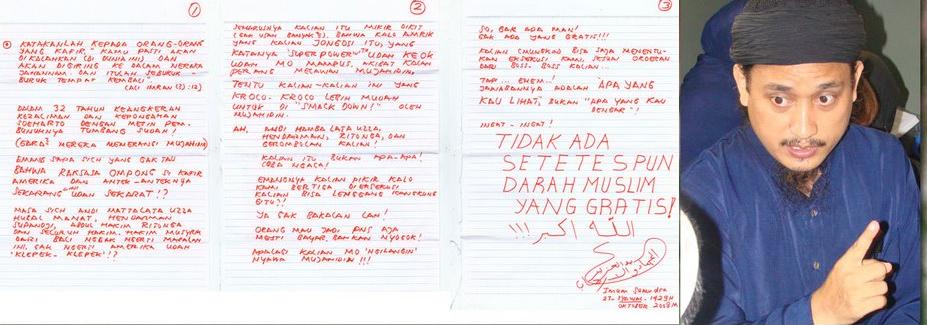 1
KATAKANLAH KEPADA ORANG-ORANG
YANG KAFIR "KAMU PASTI AKAN
DIKALAHKAN (DI DUNIA INI) DAN
AKAN DIGIRING KE DALAM NERAKA
JAHANNAM. DAN ITULAH SEBURUK-
BURUK TEMPAT KEMBALI"
(ALI IMRAN (3):12)
DALAM 32 TAHUN KEANGKERAN
KEZALIMAN DAN KEPONGAHAN
SOEHARTO DENGAN METIN PEM-
BUNUHNYA TUMBANG SUDAH!
(GARA2 MEREKA MEMERANGI MUJAHID)
EMANG SAPA SICH YANG GAK TAU
BAHWA RAKSASA OMPONG SI KAFIR
AMERIKA DAN ANTEK-ANTEKNYA
SEKARANG UDAH SEKARAT!?
MASA SICH ANDI MATTALATA UZZA
HUBAL MANAT, HENDARMAN
SUPANDJI, ABDUL HAKIM RITONGA
DAN SELURUH HAKIM-HAKIM MUSYRIK
DARI BALI NGGAK NGERTI MASALAH
INI, GAK NGERTI AMERIKA UDAH
"KLEPEK-KLEPEK"!?
2
SEHARUSNYA KALIAN ITU MIKIR DIKIT
(GAK USAH BANYAK2). BAHWA KALO AMRIK
YANG KALIAN JONGOSI ITU, YANG
KATANYA "SUPER POWER" UDAH KEOK
UDAH MO MAMPUS, AKIBAT KALAH
PERANG MELAWAN MUJAHIDIN,
TENTU KALIAN-KALIAN INI YANG
KROCO-KROCO LEBIH MUDAH
UNTUK DI "SMACK DOWN!" OLEH
MUJAHIDIN.
AH, ANDI HAMBA LATA UZZA,
HENDARMAN, RITONGA, DAN
GEROMBOLAN KALIAN!
KALIAN ITU BUKAN APA-APA!
COBA NGACA!
EMANGNYA KALIAN PIKIR KALO
KAMI BERTIGA DIEKSEKUSI
KALIAN BISA LENGGANG KANGKUNG
GITU?!
YA GAK BAKALAN LAH!
ORANG MAU JADI PNS AJA
MESTI BAYAR, BAHKAN NYOGOK!
APALAGI KALIAN MO 'NGILANGIN'
NYAWA MUJAHIDIN!!!
3
SO, GAK ADA MAN!
GAK ADA YANG GRATIS!!!
KALIAN (MUNGKIN) BISA SAJA MENENTU-
KAN EKSEKUSI KAMI, SESUAI ORDERAN
DARI BOSS-BOSS KALIAN...
TAPI... EHEM...!
JAWABANNYA ADALAH APA YANG
KAU LIHAT, BUKAN "APA YANG KAU
DENGAR"!
INGAT-INGAT!
TIDAK ADA
SETETES PUN
DARAH MUSLIM
YANG GRATIS!
الله أكبر!!!
Imam Samudra
27- SYAWAL-1429H
OKTOBER 2008M